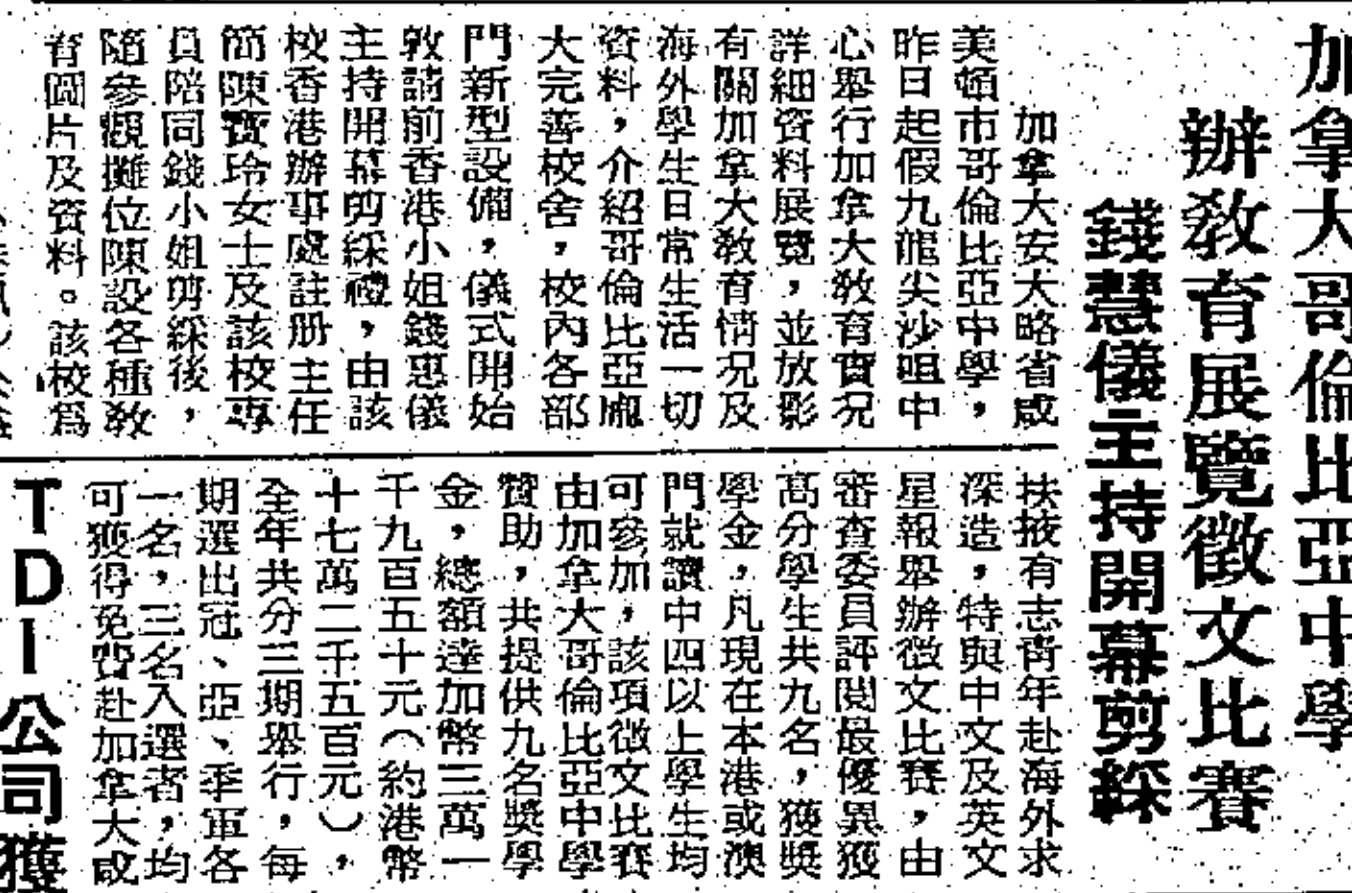 加拿大哥倫比亞中學
辦教育展覽徵文比賽
錢慧儀主持開幕剪綵
加拿大安大略省咸
美頓市哥倫比亞中學，
昨日起假九龍尖沙咀中
心舉行加拿大教育實況
詳細資料展覽，並放影
有關加拿大教育情况及
海外學生日常生活一切
資料，介紹哥倫比亞龐
大完善校舍，校內各部
門新型設備，儀式開始
敦請前香港小姐錢惠儀
主持開幕剪綵禮，由該
校香港辦事處註册主任
簡陳寶玲女士及該校專
員陪同錢小姐剪綵後，
隨參觀攤位陳設各種教
育圖片及資料。該校爲
扶掖有志靑年赴海外求
深造，特與中文及英文
星報舉辦徵文比賽，由
審查委員評閱最優異獲
高分學生共九名，獲獎
學金，凡現在本港或澳
門就讀中四以上學生均
可參加，該項徵文比賽
由加拿大哥倫比亞中學
贊助，共提供九名獎學
金，總額達加幣三萬一
千九百五十元（約港幣
十七萬二千五百元），
全年共分三期舉行，每
期選出冠、亞、季軍各
一名，三名入選者，均
可獲得免費赴加拿大咸
TDI公司獲